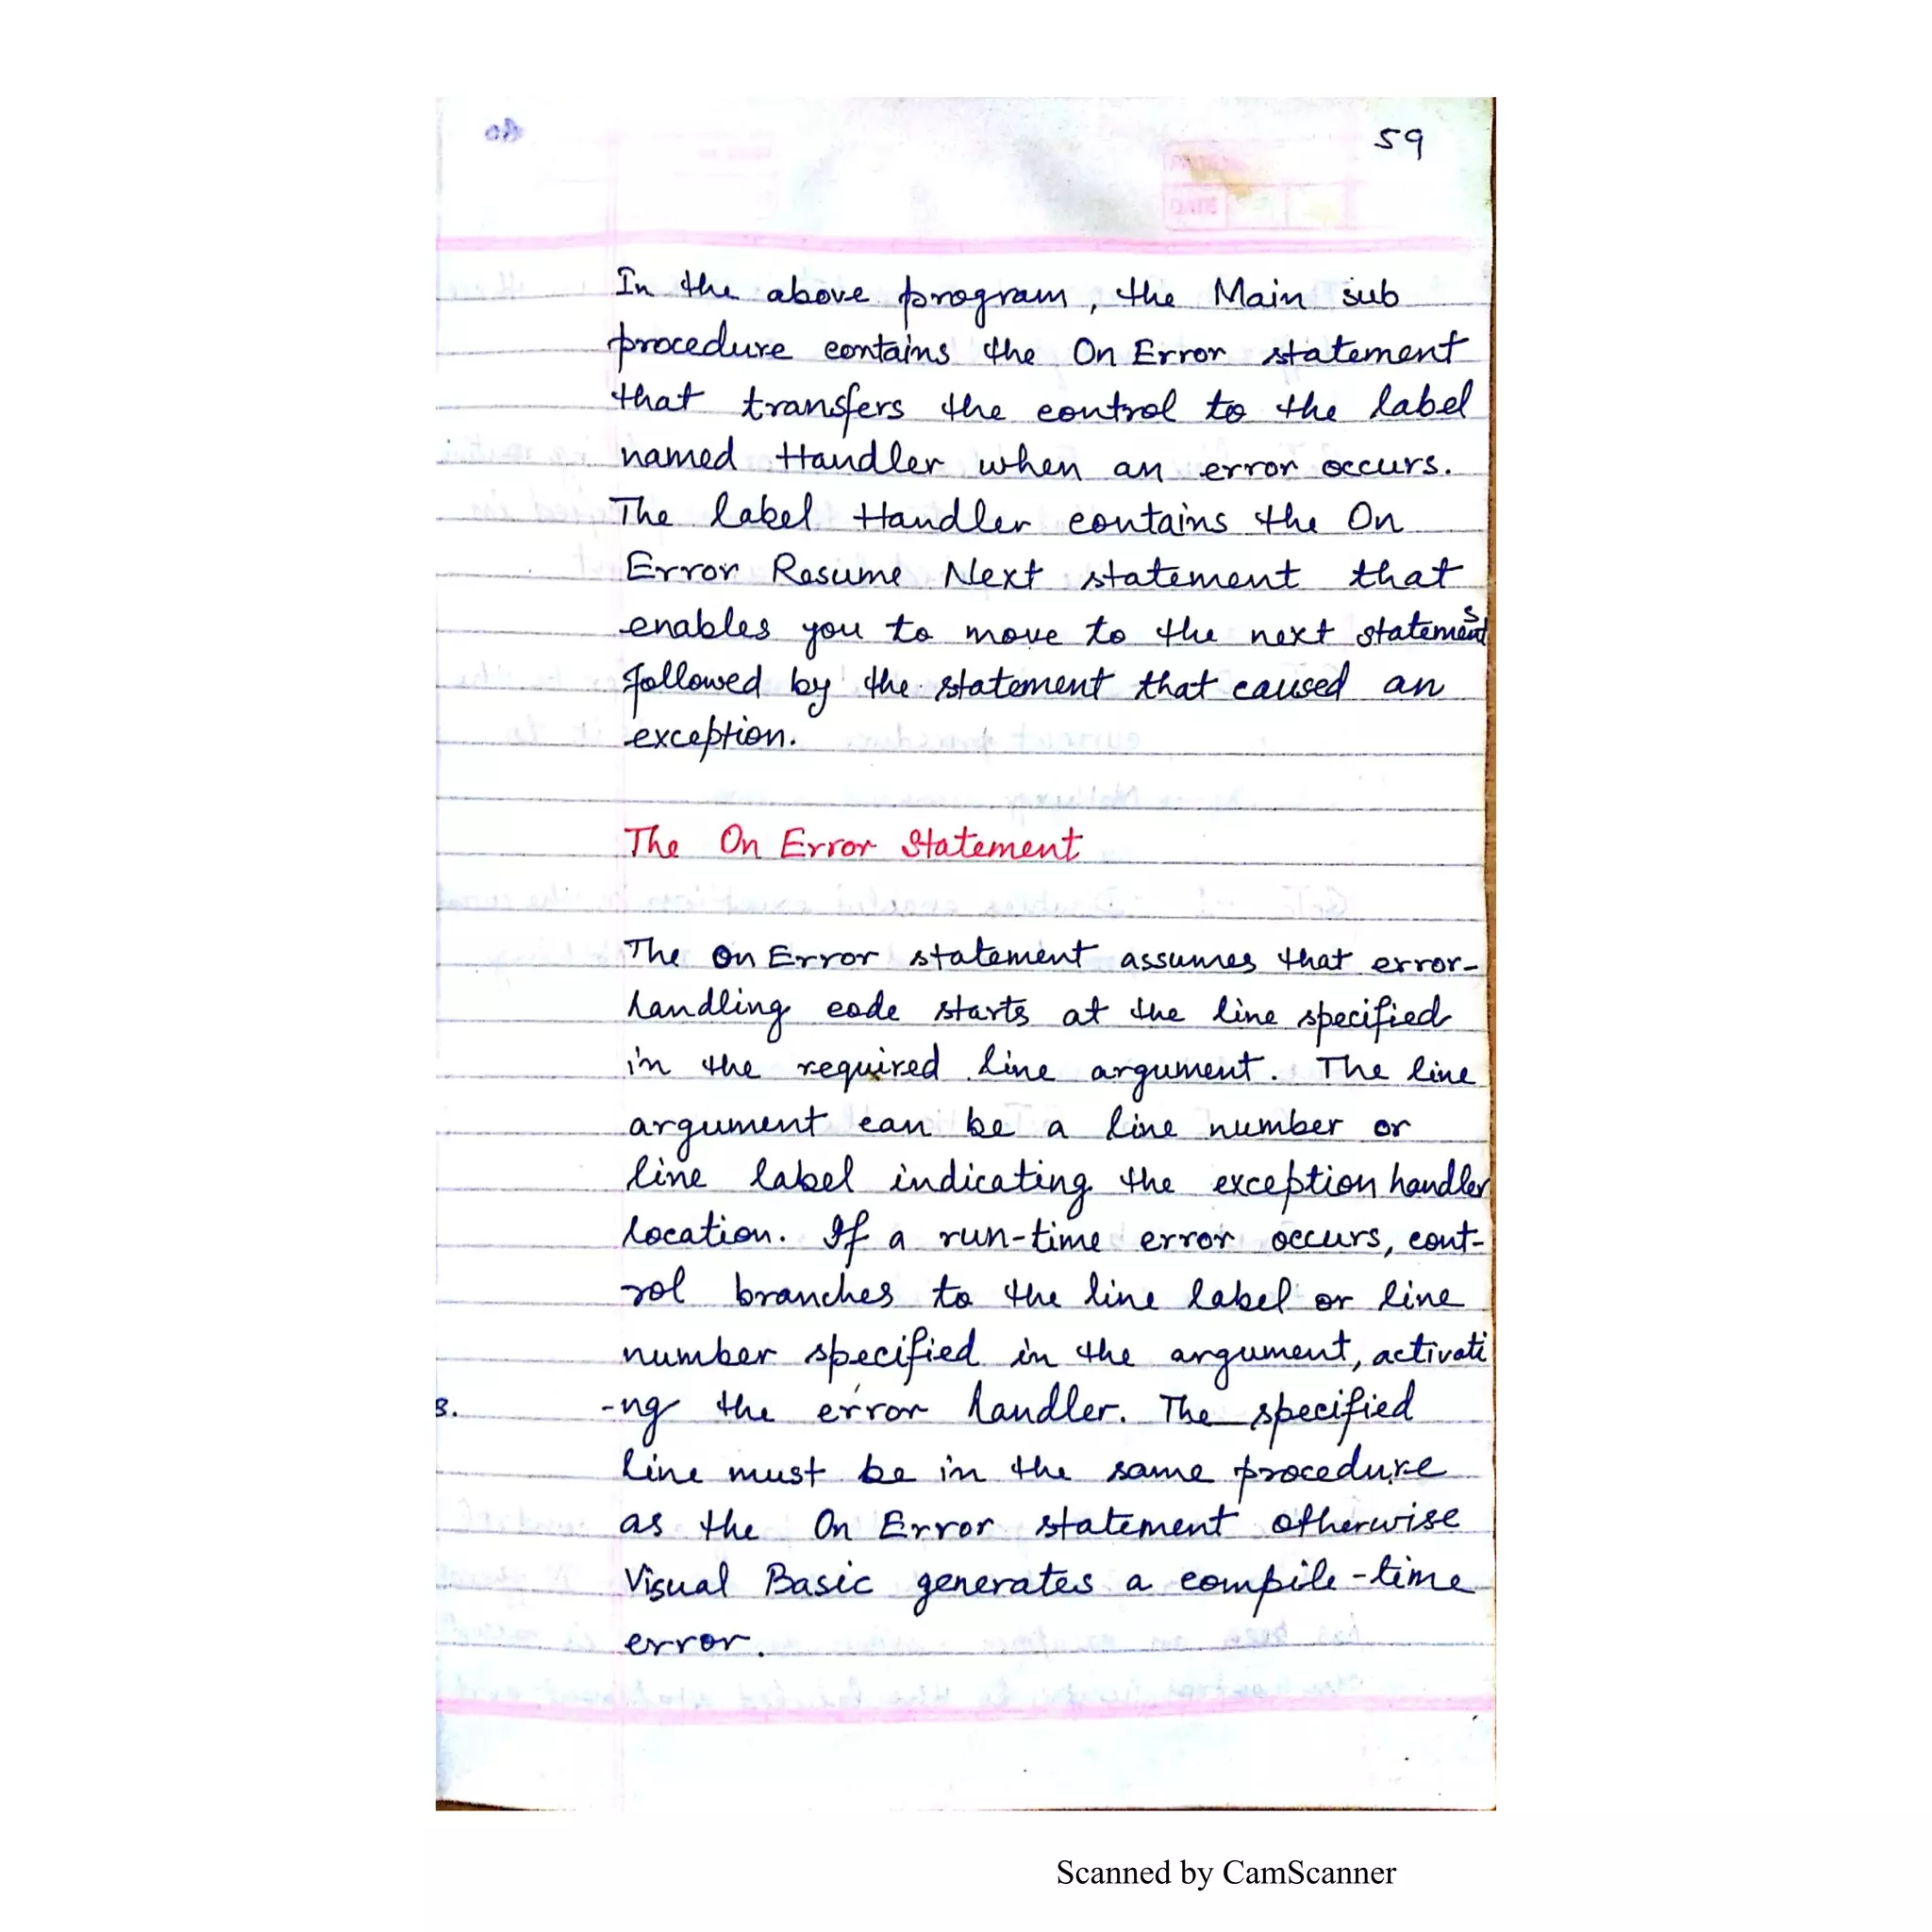 59
In the above program, the Main sub
procedure contains the On Error statement
that transfers the control to the label
named Handler when an error occurs.
The label Handler contains the On
Error Resume Next statement that
enables you to move to the next statements
followed by the statement that caused an
exception.
The On Error Statement
The On Error statement assumes that error-
handling code starts at the line specified
in the required line argument. The line
argument can be a line number or
line label indicating the exception handler
location. If a run-time error occurs, cont-
rol branches to the line label or line
number specified in the argument, activati
-ng the error handler. The specified
line must be in the same procedure
as the On Error statement otherwise
Visual Basic generates a compile-time
error.
Scanned by CamScanner